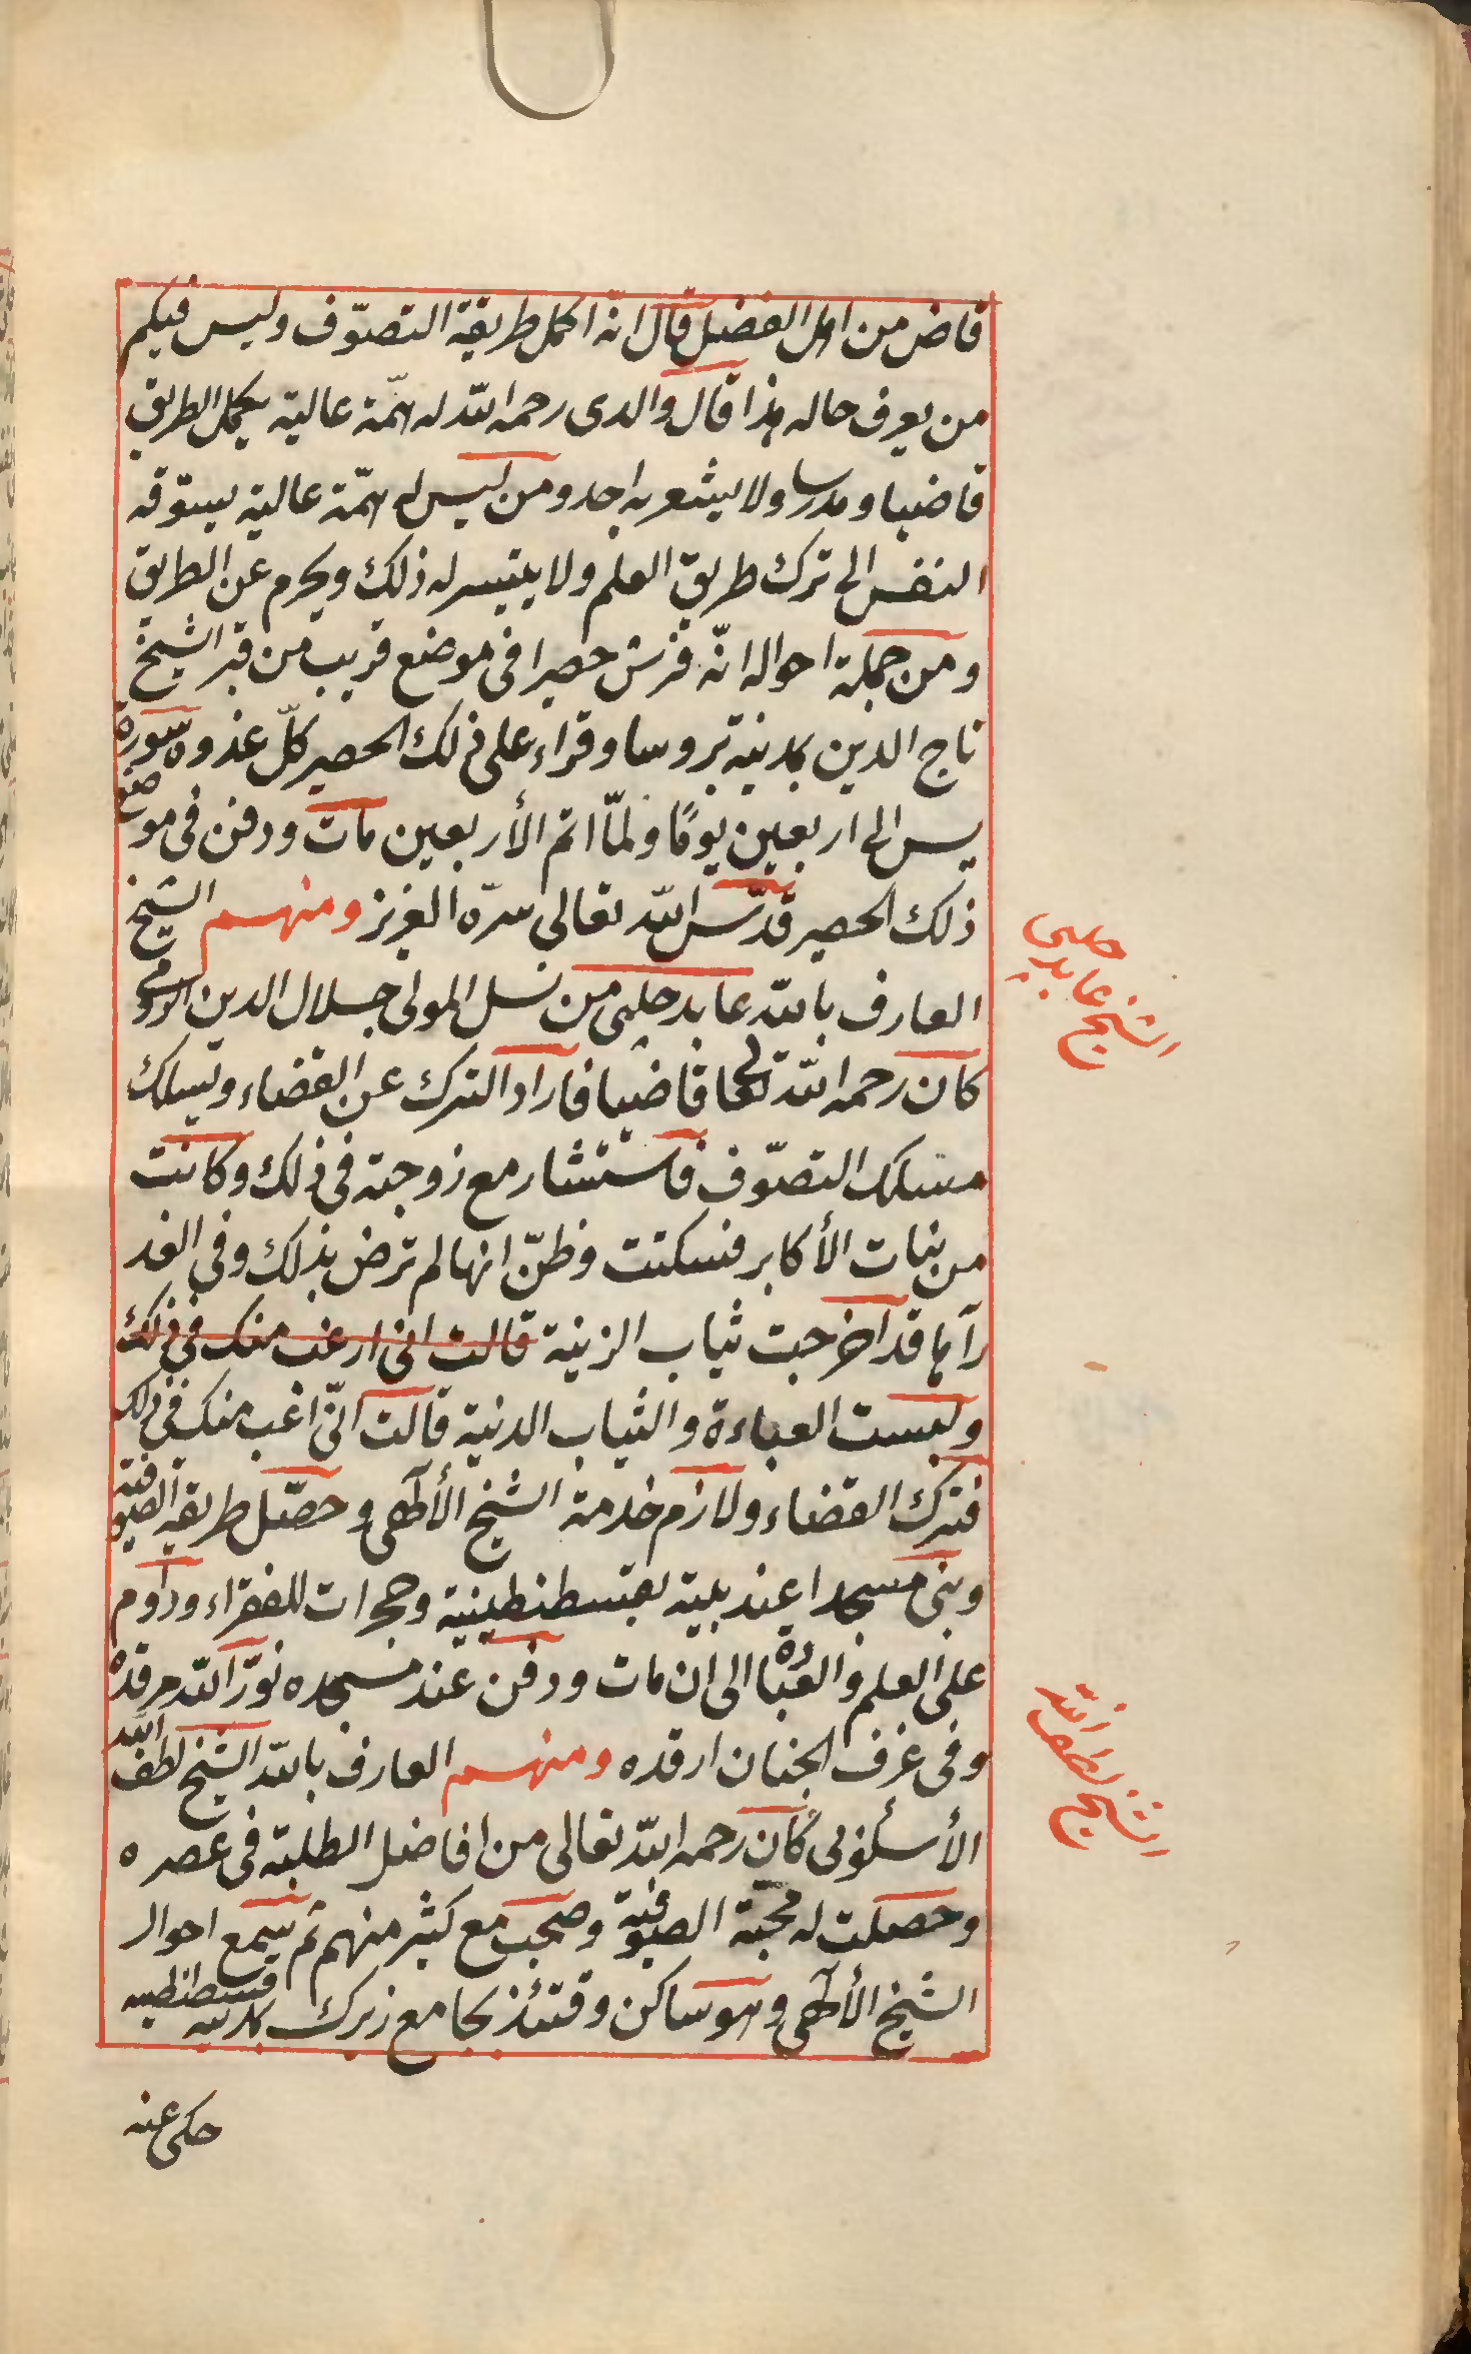 قاض من اهل الفضل قال انه اكمل طريقة التصوّف وليس فيكم
من يعرف حاله هذا قال والدى رحمه الله له همّة عالية يكمل الطريق
قاضيا ومدرسا ولا يشعر به احد ومن ليس له همّة عالية يسوّقه
النفس الى ترك طريق العلم ولا يتيسر له ذلك ويحرم عن الطريق
ومن جملة احواله انّه فرش حصيرا فى موضع قريب من قبر الشيخ
تاج الدين بمدينة بروسا وقراء على ذلك الحصير كلّ غدوه سورة
يس الى اربعين يومًا ولمّا اتم الأربعين مات ودفن فى موضع
ذلك الحصير قدّس الله تعالى سرّه العزيز ومنهم الشيخ
العارف بالله عابد جلبى من نسل المولى جلال الدين الرومى
كان رحمه الله تعالى قاضيا فاراد الترك عن القضاء ويسلك
مسلك التصوّف فاستشار مع زوجته فى ذلك وكانت
من بنات الأكابر فسكتت وظنّ انها لم ترض بذلك وفى الغد
رآها قد اخرجت ثياب الزينة قالت انى ارغب منك فى ذلك
ولبست العباءة والثياب الدنية قالت انّى اغب منك فى ذلك
فترك القضاء ولازم خدمة الشيخ الألٓهى وحصّل طريقة الصوفية
وبنى مسجدا عند بيته بقسطنطينية وحجرات للفقراء وداوم
على العلم والعبادة الى ان مات ودفن عند مسجده نوّر الله مرقده
وفى غرف الجنان ارقده ومنهم العارف بالله الشيخ لطف الله
الأسكوبى كان رحمه الله تعالى من افاضل الطلبة فى عصره
وحصلت له محبة الصوفية وصحب مع كثير منهم ثم سمع احوال
الشيخ الألٓهى وهو ساكن وقتئذ بجامع زيرك بمدينة قسطنطينية
حكى عنه
الشيخ عابد جلبى
الشيخ لطف الله